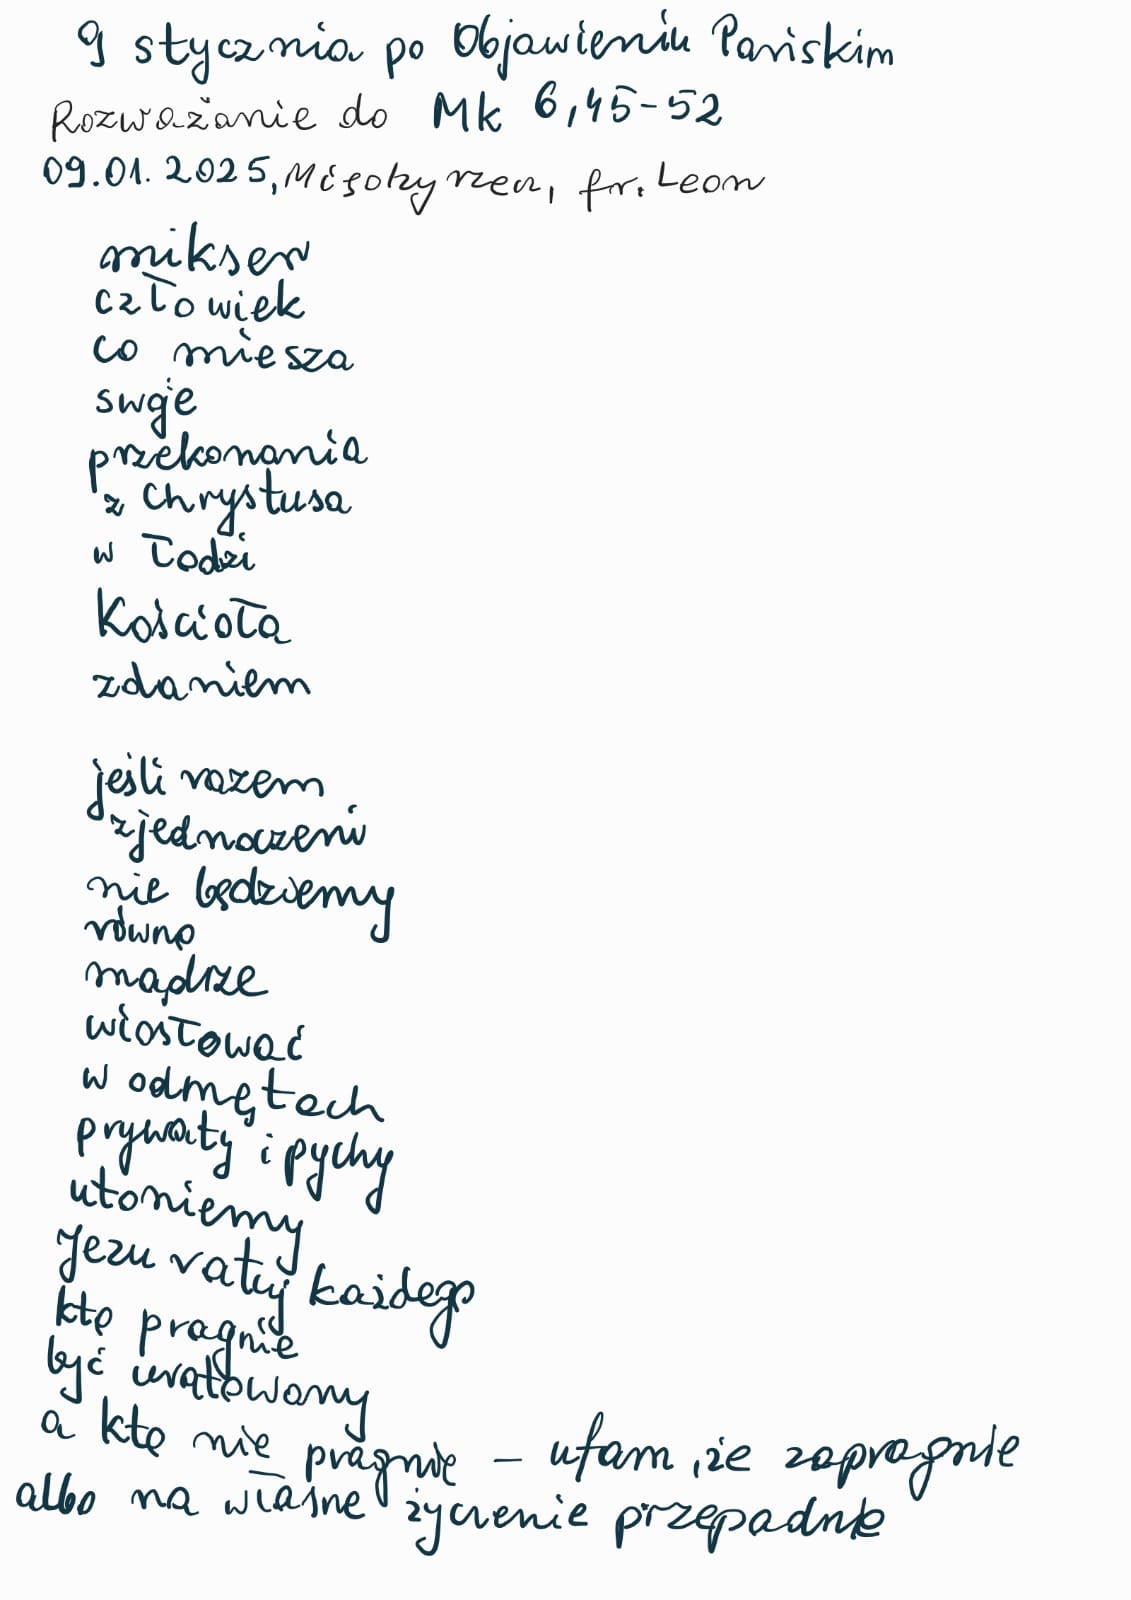 9 stycznia po Objawieniu Pańskim
Rozważanie do Mk 6,45-52
09.01.2025, fr. Leon
mikser
człowiek
co miesza
swoje
przekonania
z Chrystusa
w łodzi
Kościoła
zdaniem
jeśli razem
zjednoczeni
nie będziemy
równo
mądrze
wiosłować
w odmętach
prywaty i pychy
utoniemy
Jezu ratuj każdego
kto pragnie
być uratowany
a kto nie pragnie – ufam, że zapragnie
albo na własne życzenie przepadnie